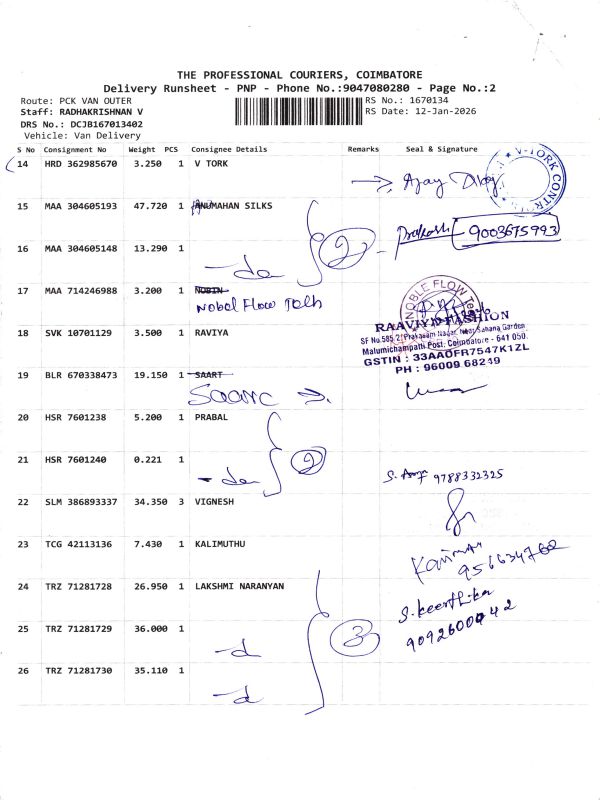 THE PROFESSIONAL COURIERS, COIMBATORE
Delivery Runsheet - PNP - Phone No.:9047080280 - Page No.:2
Route: PCK VAN OUTER
RS No.: 1670134
Staff: RADHAKRISHNAN V
RS Date: 12-Jan-2026
DRS No.: DCJB167013402
Vehicle: Van Delivery
S No Consignment No Weight PCS Consignee Details Remarks Seal & Signature
14 HRD 362985670 3.250 1 V TORK
Ajay
V-TORK CONTR
15 MAA 304605193 47.720 1 ANUMAHAN SILKS
Prakash 9003675993
16 MAA 304605148 13.290 1
-do 2
17 MAA 714246988 3.200 1 NOBIN
Nobel Flow Tech
NOBLE FLOW Te
18 SVK 10701129 3.500 1 RAVIYA
RAAVIYA FASHION
SF No.585/2 Prakasam Nagar, Near Sahana Garden
Malumichampatti Post, Coimbatore - 641 050.
GSTIN : 33AAOFR7547K1ZL
PH : 96009 68249
19 BLR 670338473 19.150 1 SAART
20 HSR 7601238 5.200 1 PRABAL
21 HSR 7601240 0.221 1
-do 2
9788332325
22 SLM 386893337 34.350 3 VIGNESH
23 TCG 42113136 7.430 1 KALIMUTHU
24 TRZ 71281728 26.950 1 LAKSHMI NARANYAN
S.keerthika
25 TRZ 71281729 36.000 1
-d 3
26 TRZ 71281730 35.110 1
-d